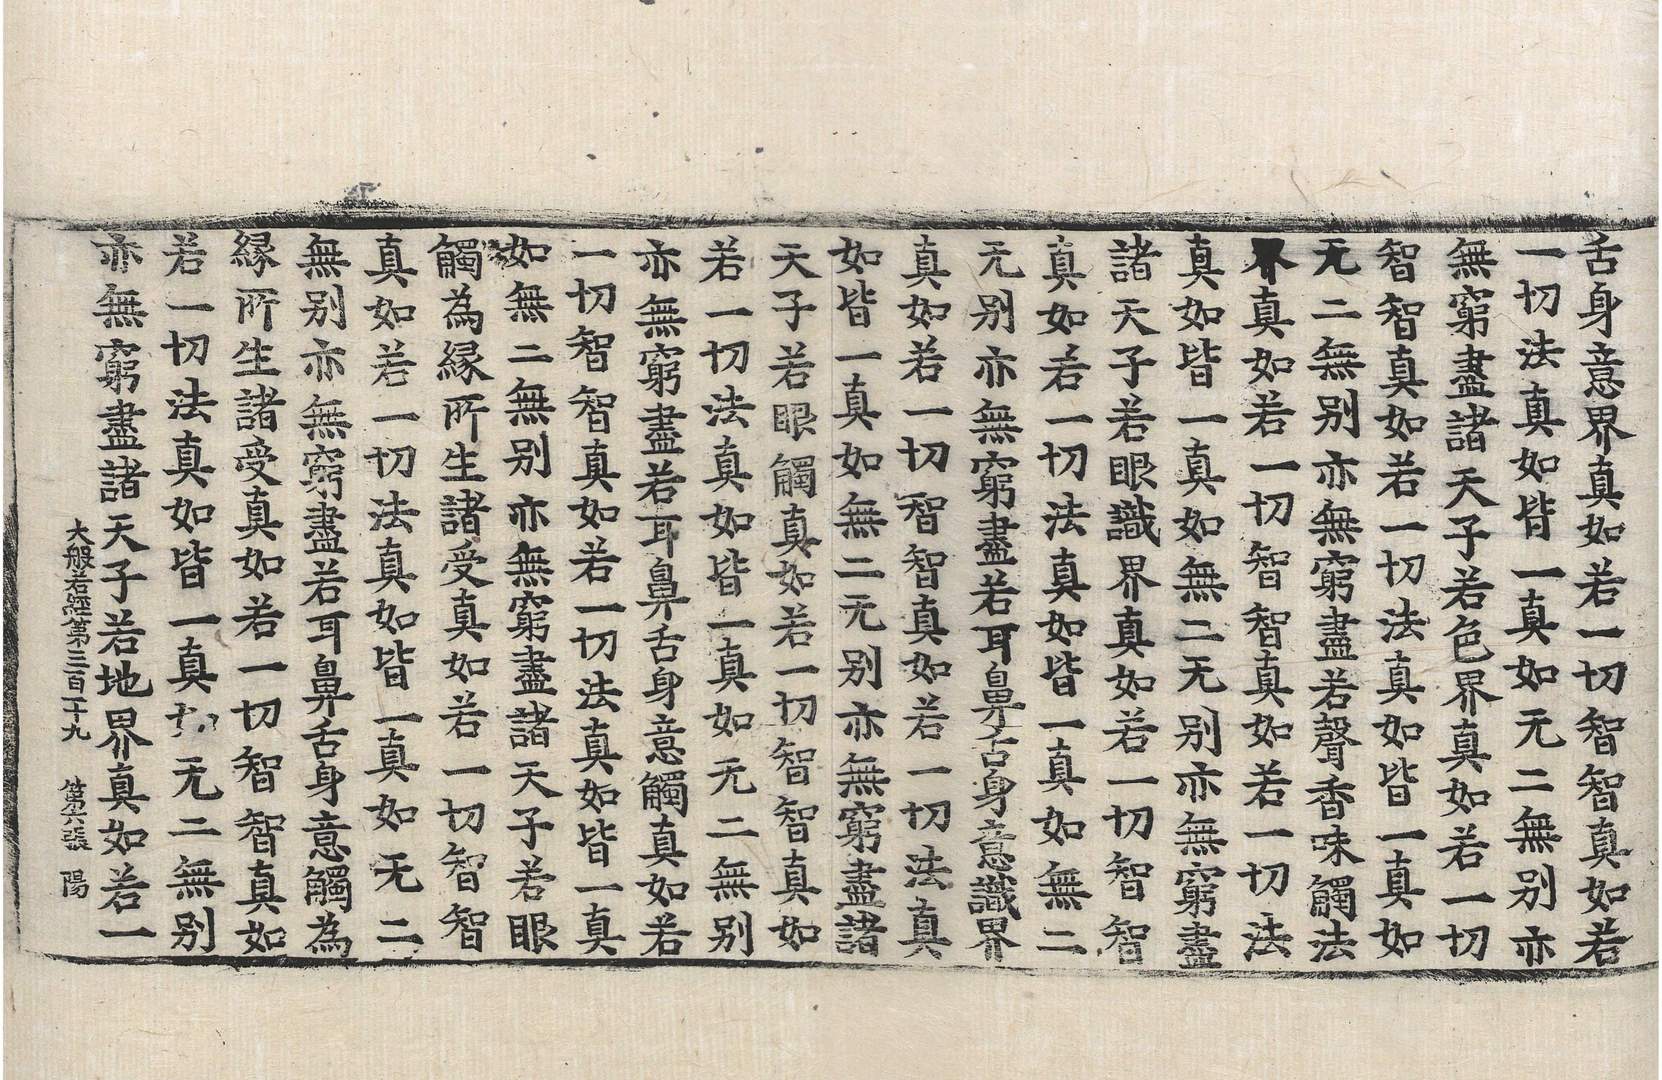 舌身意界真如若一切智智真如若
一切法真如皆一真如无二無别亦
無窮盡諸天子若色界真如若一切
智智真如若一切法真如皆一真如
无二無别亦無窮盡若聲香味觸法
界真如若一切智智真如若一切法
真如皆一真如無二无别亦無窮盡
諸天子若眼識界真如若一切智智
真如若一切法真如皆一真如無二
无别亦無窮盡若耳鼻舌身意識界
真如若一切智智真如若一切法真
如皆一真如無二无别亦無窮盡諸
天子若眼觸真如若一切智智真如
若一切法真如皆一真如无二無别
亦無窮盡若耳鼻舌身意觸真如若
一切智智真如若一切法真如皆一真
如無二無别亦無窮盡諸天子若眼
觸為緣所生諸受真如若一切智智
真如若一切法真如皆一真如无二
無别亦無窮盡若耳鼻舌身意觸為
緣所生諸受真如若一切智智真如
若一切法真如皆一真无二無别
亦無窮盡諸天子若地界真如若一
大般若經第三百二十九 第六張 陽